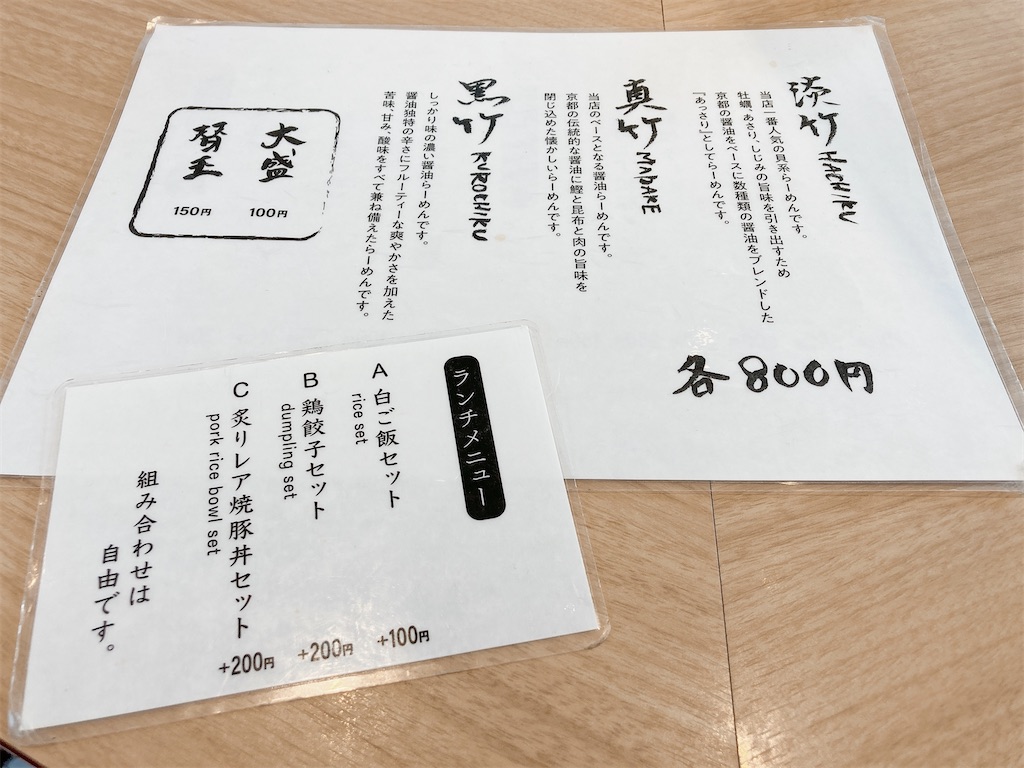 淡竹 HACHIKU
当店一番人気の貝系らーめんです。
牡蠣、あさり、しじみの旨味を引き出すため
京都の醤油をベースに数種類の醤油をブレンドした
『あっさり』としてらーめんです。
真竹 MADAKE
当店のベースとなる醤油らーめんです。
京都の伝統的な醤油に鰹と昆布と肉の旨味を
閉じ込めた懐かしいらーめんです。
黒竹 KUROCHIKU
しっかり味の濃い醤油らーめんです。
醤油独特の辛さにフルーティーな爽やかさを加えた
苦味、甘み、酸味をすべて兼ね備えたらーめんです。
各800円
大盛 100円
替玉 150円
ランチメニュー
A 白ご飯セット +100円
rice set
B 鶏餃子セット +200円
dumpling set
C 炙りレア焼豚丼セット +200円
pork rice bowl set
組み合わせは
自由です。